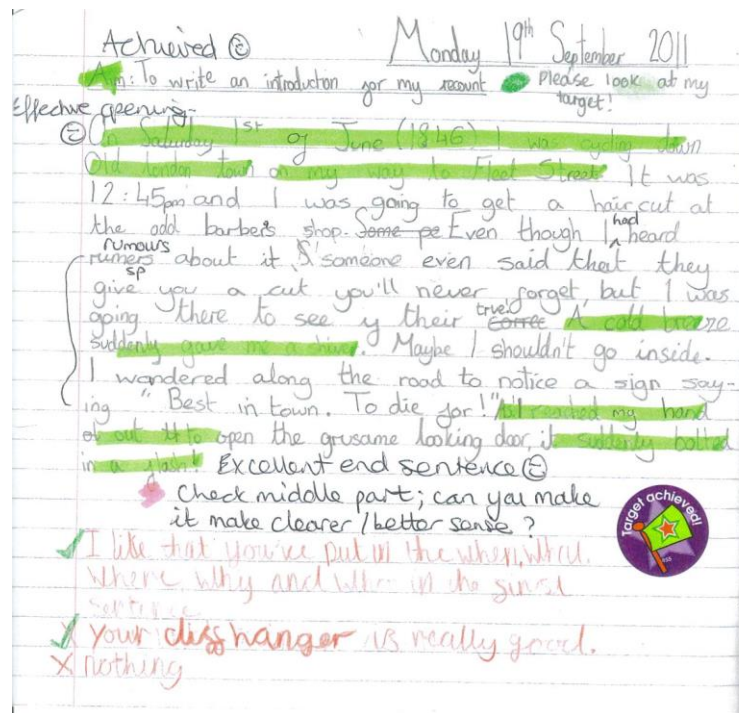 Achieved
Monday 19th September 2011
Aim: To write an introduction for my recount Please look at my target!
Effective opening-
On Saturday 1st of June (1846) I was cycling down
Old London town on my way to Fleet Street. It was
12:45pm and I was going to get a haircut at
the odd barber's shop. Some pe Even though I had heard
rumours
rumers about it, someone even said that they
sp
give you a cut you'll never forget, but I was
going there to see y their true. A cold breeze
suddenly gave me a shiver. Maybe I shouldn't go inside.
I wandered along the road to notice a sign say-
ing "Best in town. To die for!" As I reached my hand
out to open the grusame looking door, it suddenly bolted
in a flash! Excellent end sentence
Check middle part; can you make
it make clearer/better sense?
Target achieved!
I like that you've put in the when, what,
where, why and who in the first
sentence
Your cliff hanger is really good.
nothing